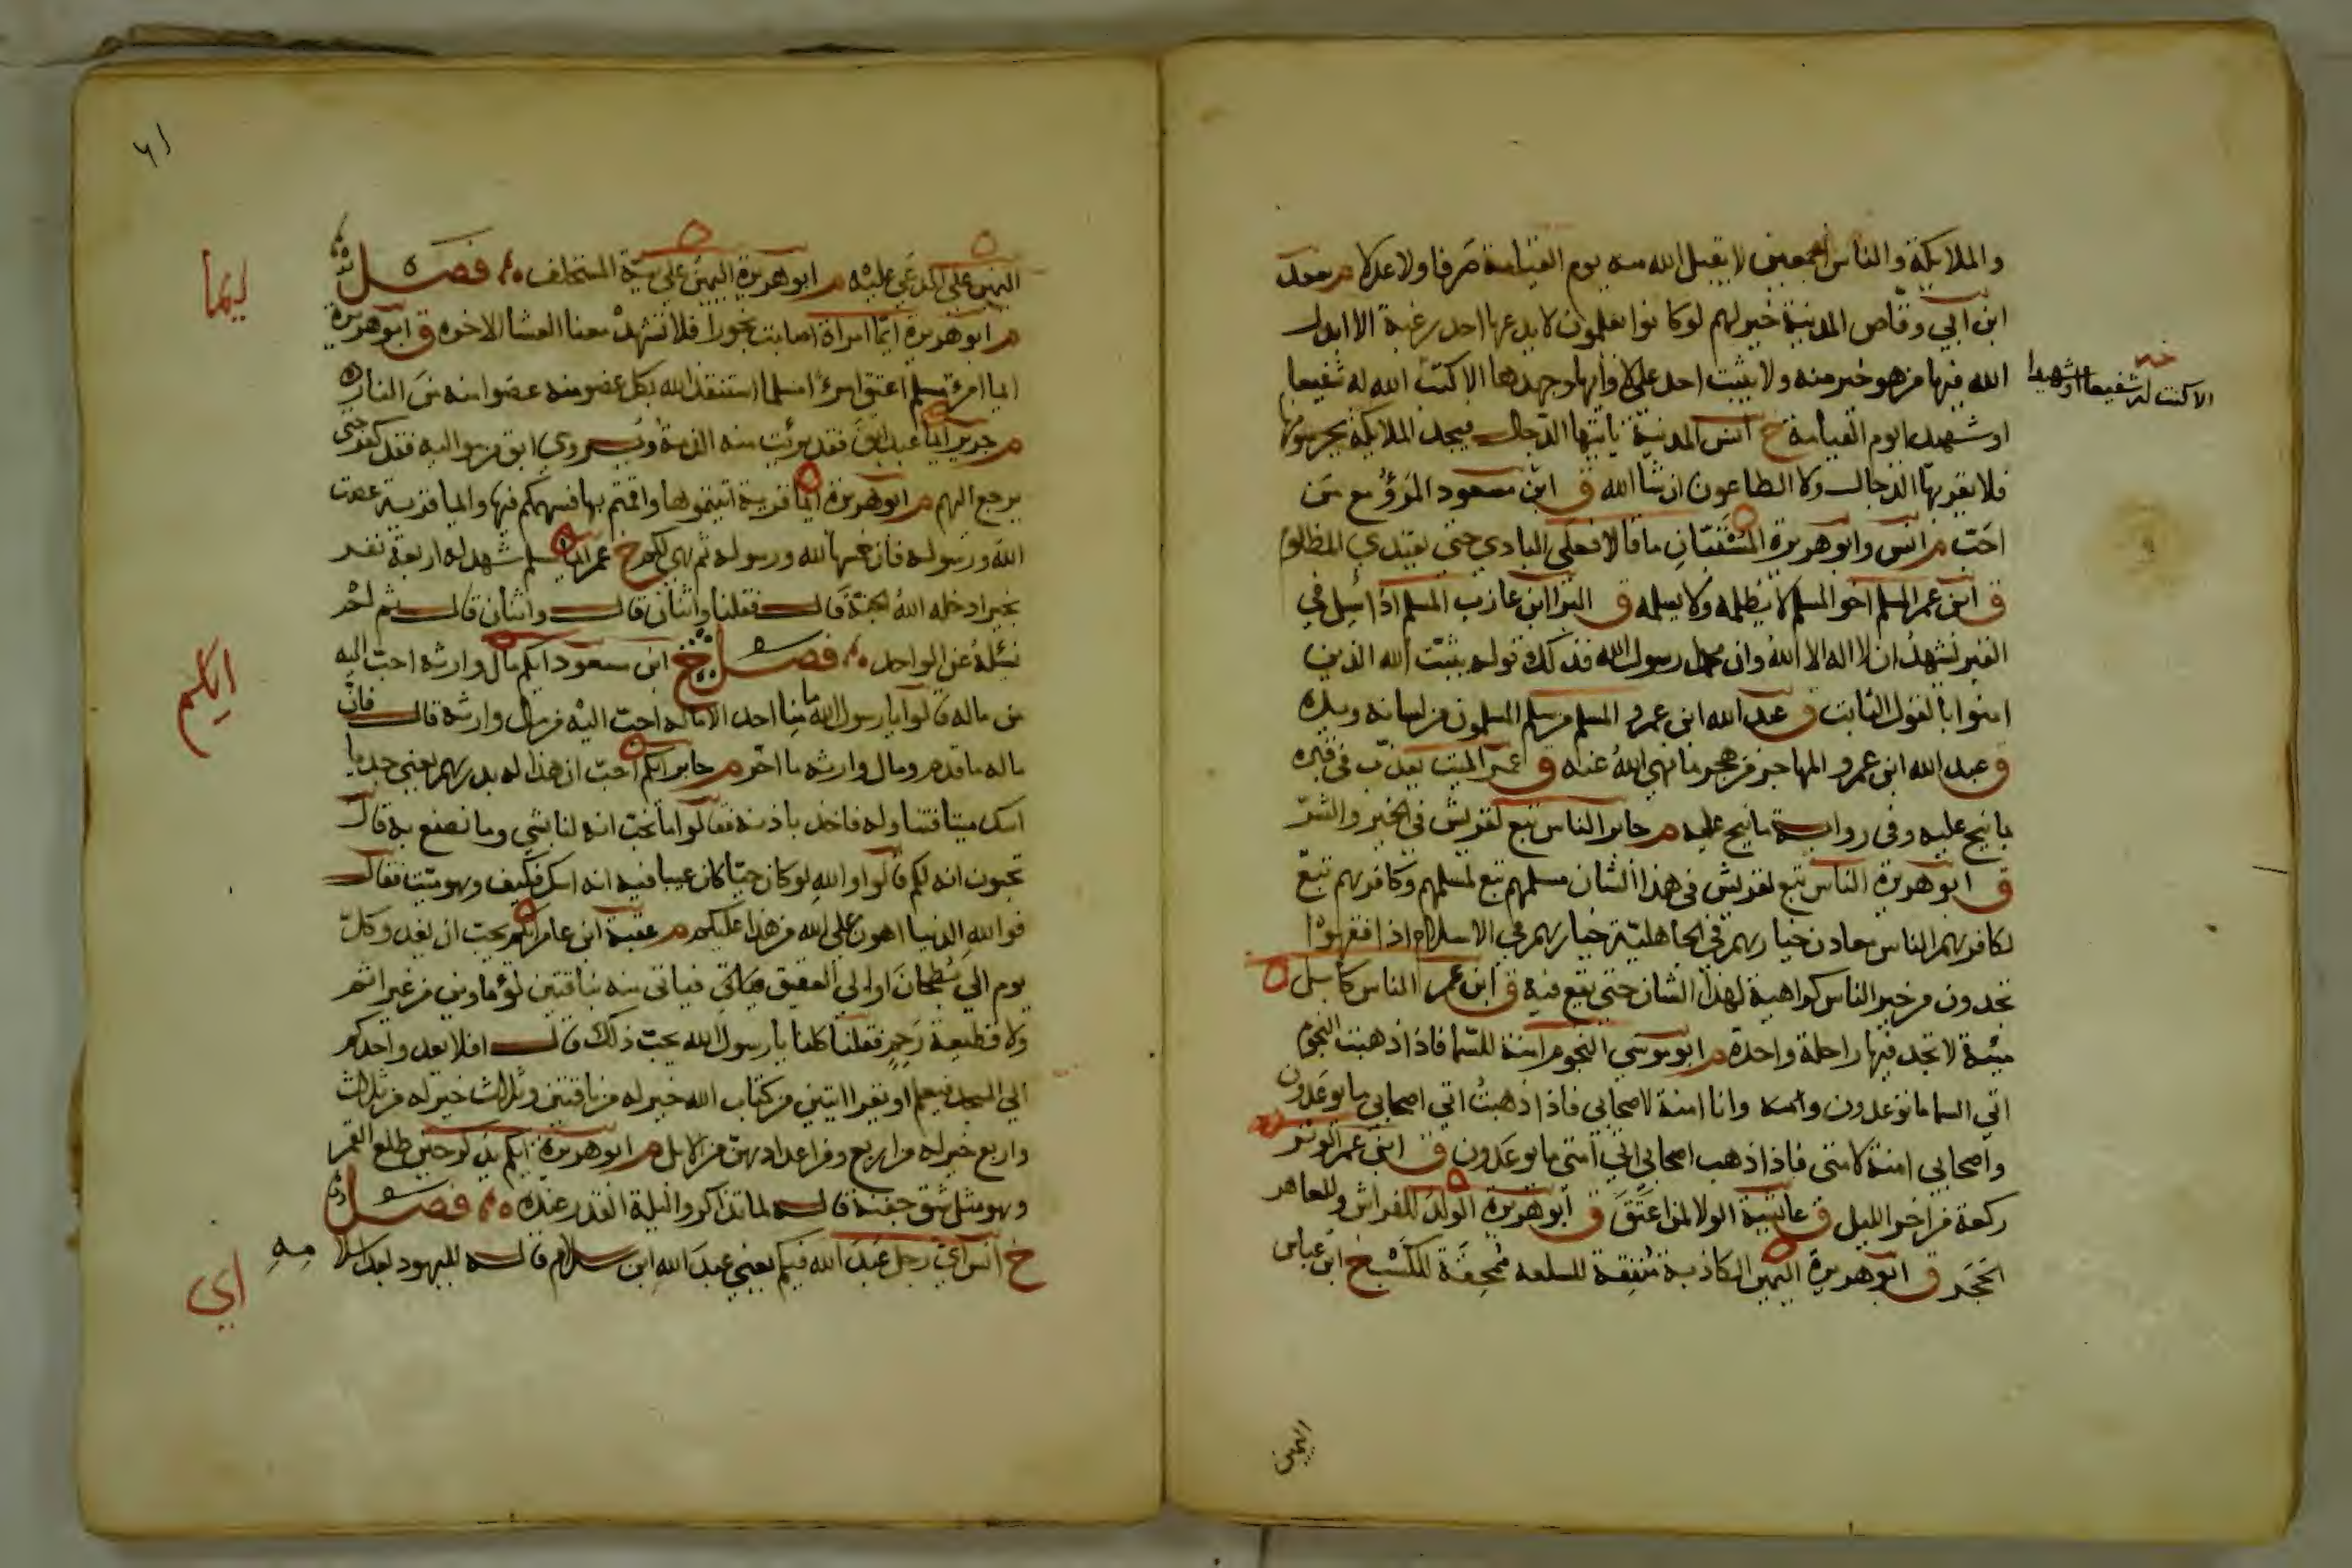 والملايكة والناس اجمعين لا يقبل الله منه يوم القيامة صرفا ولا عدلا م سعد
ابن ابي وقاص المدينة خير لهم لو كانوا يعلمون لا يدعها احد رغبة الا ابدل
الله فيها من هو خير منه ولا يثبت احد على لاوايها وجهدها الا كنت الله له شفيعا
الا كنت له شفيعا او شهيدا
او شهيدا يوم القيامة خ انس المدينة ياتيها الدجال فيجد الملايكة يحرسونها
فلا يقربها الدجال ولا الطاعون ان شا الله ق ابن مسعود المرؤ مع من
احب م انس وابو هريرة المستبان ما قالا فعلى البادي حتى يعتدي المظلوم
ق ابن عمر المسلم اخو المسلم لا يظلمه ولا يسلمه ق البرا ابن عازب المسلم اذا سئل في
القبر يشهد ان لا اله الا الله وان محمد رسول الله فذلك قوله يثبت الله الذين
امنوا بالقول الثابت ق عبد الله ابن عمرو المسلم من سلم المسلمون من لسانه ويده
ق عبد الله ابن عمرو المهاجر من هجر ما نهى الله عنه ق عمر الميت يعذب في قبره
بما نيح عليه وفي رواية ما نيح عليه م جابر الناس تبع لقريش في الخير والشر
ق ابو هريرة الناس تبع لقريش في هذا الشان مسلمهم تبع لمسلمهم وكافرهم تبع
لكافرهم الناس معادن خيارهم في الجاهلية خيارهم في الاسلام اذا فقهوا
تجدون من خير الناس كراهية لهذا الشان حتى يقع فيه ق ابن عمر الناس كابل
مئة لا تجد فيها راحلة واحدة م ابو موسى النجوم امنة للسما فاذا ذهبت النجوم
اتي السما ما توعدون وانا امنة لاصحابي فاذا ذهبت اتي اصحابي ما يوعدون
واصحابي امنة لامتي فاذا ذهب اصحابي اتي امتي ما يوعدون ق ابن عمر الوتر
ركعة من اخر الليل ق عائشة الولا لمن اعتق ق ابو هريرة الولد للفراش وللعاهر
الحجر ق ابو هريرة اليمين الكاذبة منفقة للسلعة ممحقة للكسب خ ابن عباس
اليمين
اليمين على المدعى عليه م ابو هريرة اليمين على نية المستحلف فصل
م ابو هريرة ايما امراة اصابت بخورا فلا تشهد معنا العشا الاخره ق ابو هريرة
ايما امرئ مسلم اعتق امرءا مسلما استنقذ الله بكل عضو منه عضوا منه من النار
م جرير ايما عبد ابق فقد برئت منه الذمة ويروى ابق من مواليه فقد كفر حتى
يرجع اليهم م ابو هريرة ايما قرية اتيتموها واقمتم بها فسهمكم فيها وايما قرية عصت
الله ورسوله فان خمسها لله ورسوله ثم هي لكم خ عمر ايما مسلم شهد له اربعة نفر
بخير ادخله الله الجنة قال فقلنا واثنان قال واثنان قال ثم لم
نسئله عن الواحد فصل خ ابن مسعود ايكم مال وارثه احب اليه
من ماله قالوا يا رسول الله ما منا احد الا ماله احب اليه من مال وارثه قال فان
ماله ما قدم ومال وارثه ما اخر م جابر ايكم احب ان هذا له بدرهم يعني جديا
اسك ميتا فتناوله فاخذ باذنه فقالوا ما نحب انه لنا بشي وما نصنع به قال
تحبون انه لكم قالوا والله لو كان حيا كان عيبا فيه انه اسك فكيف وهو ميت فقال
فوالله الدنيا اهون على الله من هذا عليكم م عقبة ابن عامر ايكم يحب ان يغدو كل
يوم الى بطحان او الى العقيق فياتي منه بناقتين كوماوين من غير اثم
ولا قطيعة رحم فقلنا كلنا يا رسول الله يحب ذلك قال افلا يغدو احدكم
الى المسجد فيعلم او يقرا ايتين من كتاب الله خير له من ناقتين وثلاث خير له من ثلاث
واربع خير له من اربع ومن اعدادهن من الابل م ابو هريرة ايكم يذكر حين طلع القمر
وهو مثل شق جفنة قال لما تذاكروا ليلة القدر عنده فصل
خ انس اي رجل عبد الله فيكم يعني عبد الله ابن سلام قاله لليهود بعد اسلامه
ايما
ايكم
اي